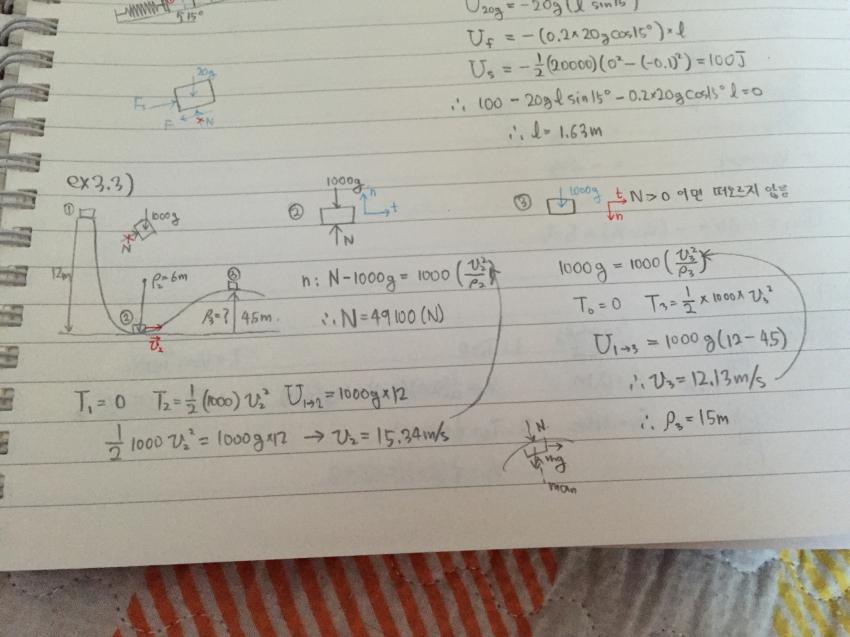 5 15°
U20g = -20g(l sin15°
Uf = -(0.2×20g cos15°)×l
Us = -½(20000)(0²-(-0.1)²) = 100J
∴ 100 - 20g l sin15° - 0.2×20g cos15° l = 0
∴ l = 1.63m
20g
F
N
ex3.3)
① 1000g
N
12m
ρ2=6m
② v2
③
ρ3=? 4.5m
② 1000g
n
t
N
n: N-1000g = 1000(v2²/ρ2)
∴ N = 49100(N)
③ 1000g
t
n
N>0 이면 떠오르지 않음
1000g = 1000(v3²/ρ3)
T0 = 0 T3 = ½×1000×v3²
U1→3 = 1000g(12-4.5)
∴ v3 = 12.13m/s
∴ ρ3 = 15m
T1 = 0 T2 = ½(1000)v2² U1→2 = 1000g×12
½ 1000 v2² = 1000g×12 → v2 = 15.34m/s
N
mg
man